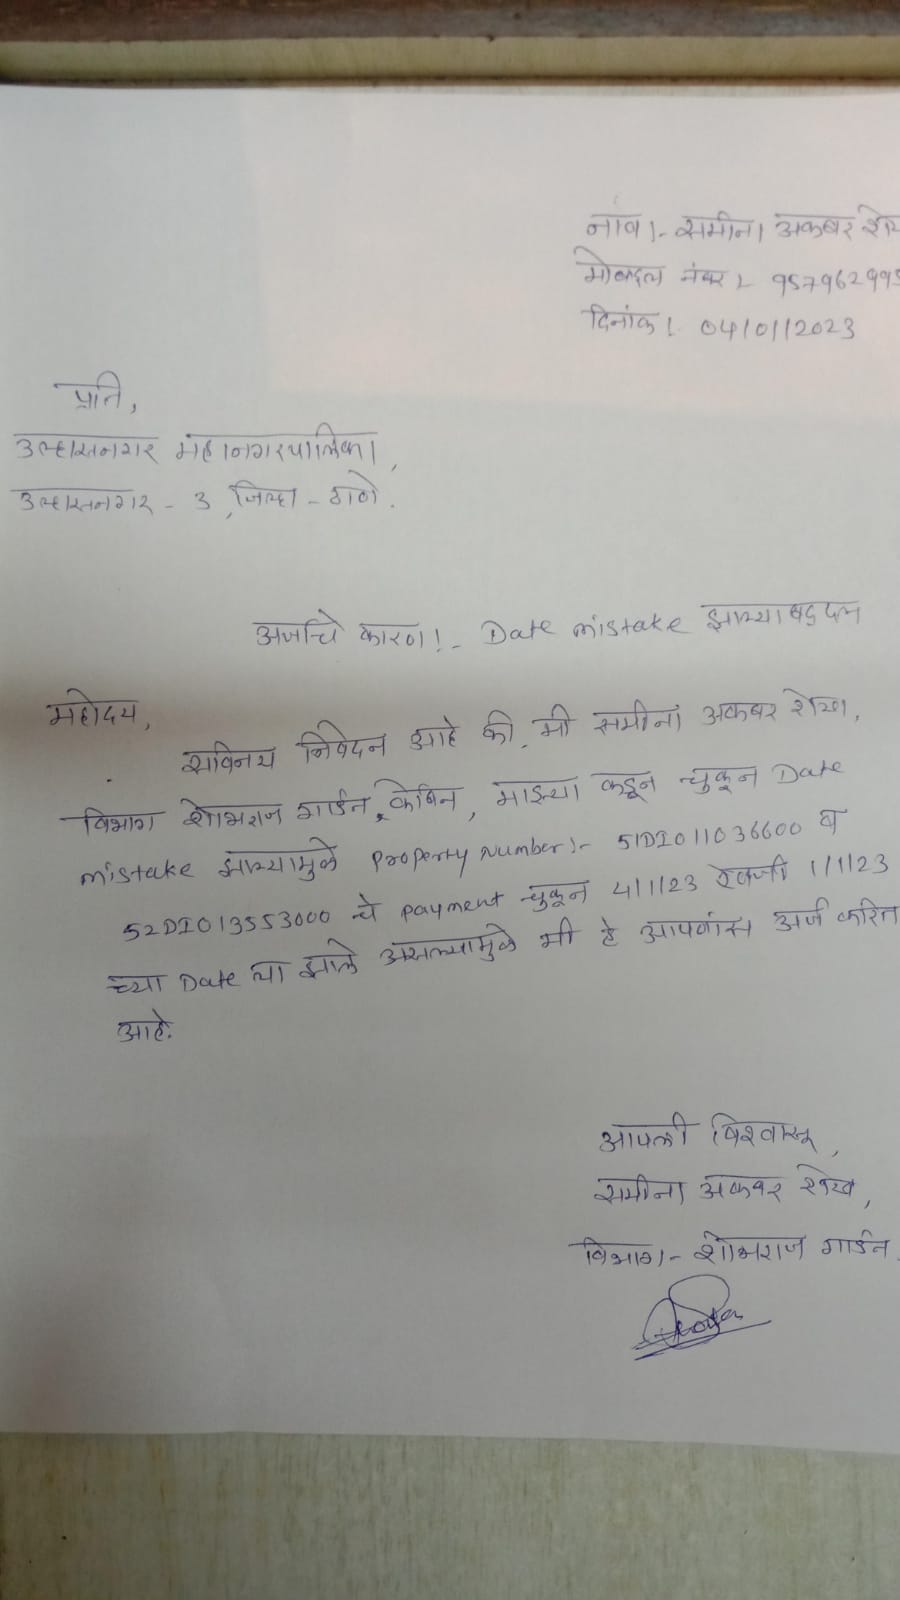 नांव :- समीना अकबर शेख
मोबाईल नंबर :- ९५७९६२९९५
दिनांक :- ०4/०1/2०23
प्रति,
उल्हासनगर महानगरपालिका,
उल्हासनगर - ३, जिल्हा - ठाणे.
अर्जाचे कारण :- Date mistake झाल्याबद्दल
महोदय,
सविनय निवेदन आहे की, मी समीना अकबर शेख,
विभाग शोभराज गार्डन, केबिन, माझ्या कडून चुकून Date
mistake झाल्यामुळे Property Number :- 51DI011036600 व
52DI013553000 चे payment चुकून 4/1/23 ऐवजी 1/1/23
च्या Date चा झाले असल्यामुळे मी हे आपणांस अर्ज करित
आहे.
आपली विश्वासू,
समीना अकबर शेख,
विभाग - शोभराज गार्डन.